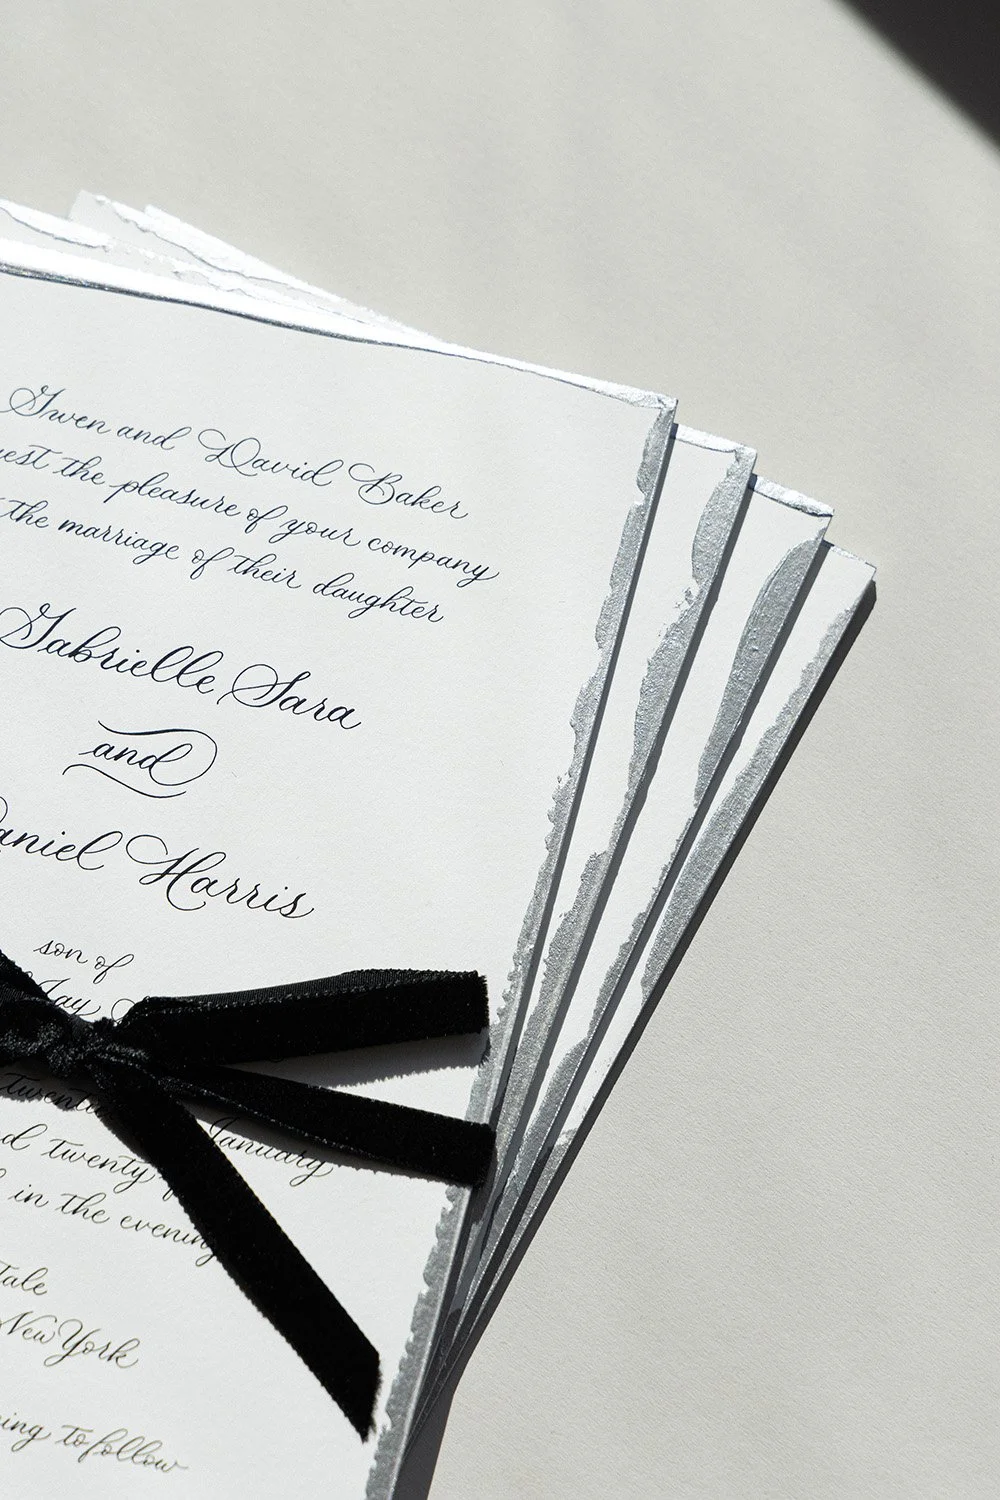 Gwen and David Baker
the pleasure of your company
the marriage of their daughter
Gabrielle Sara
and
Daniel Harris
son of
Jay
January
twenty
in the evening
New York
to follow